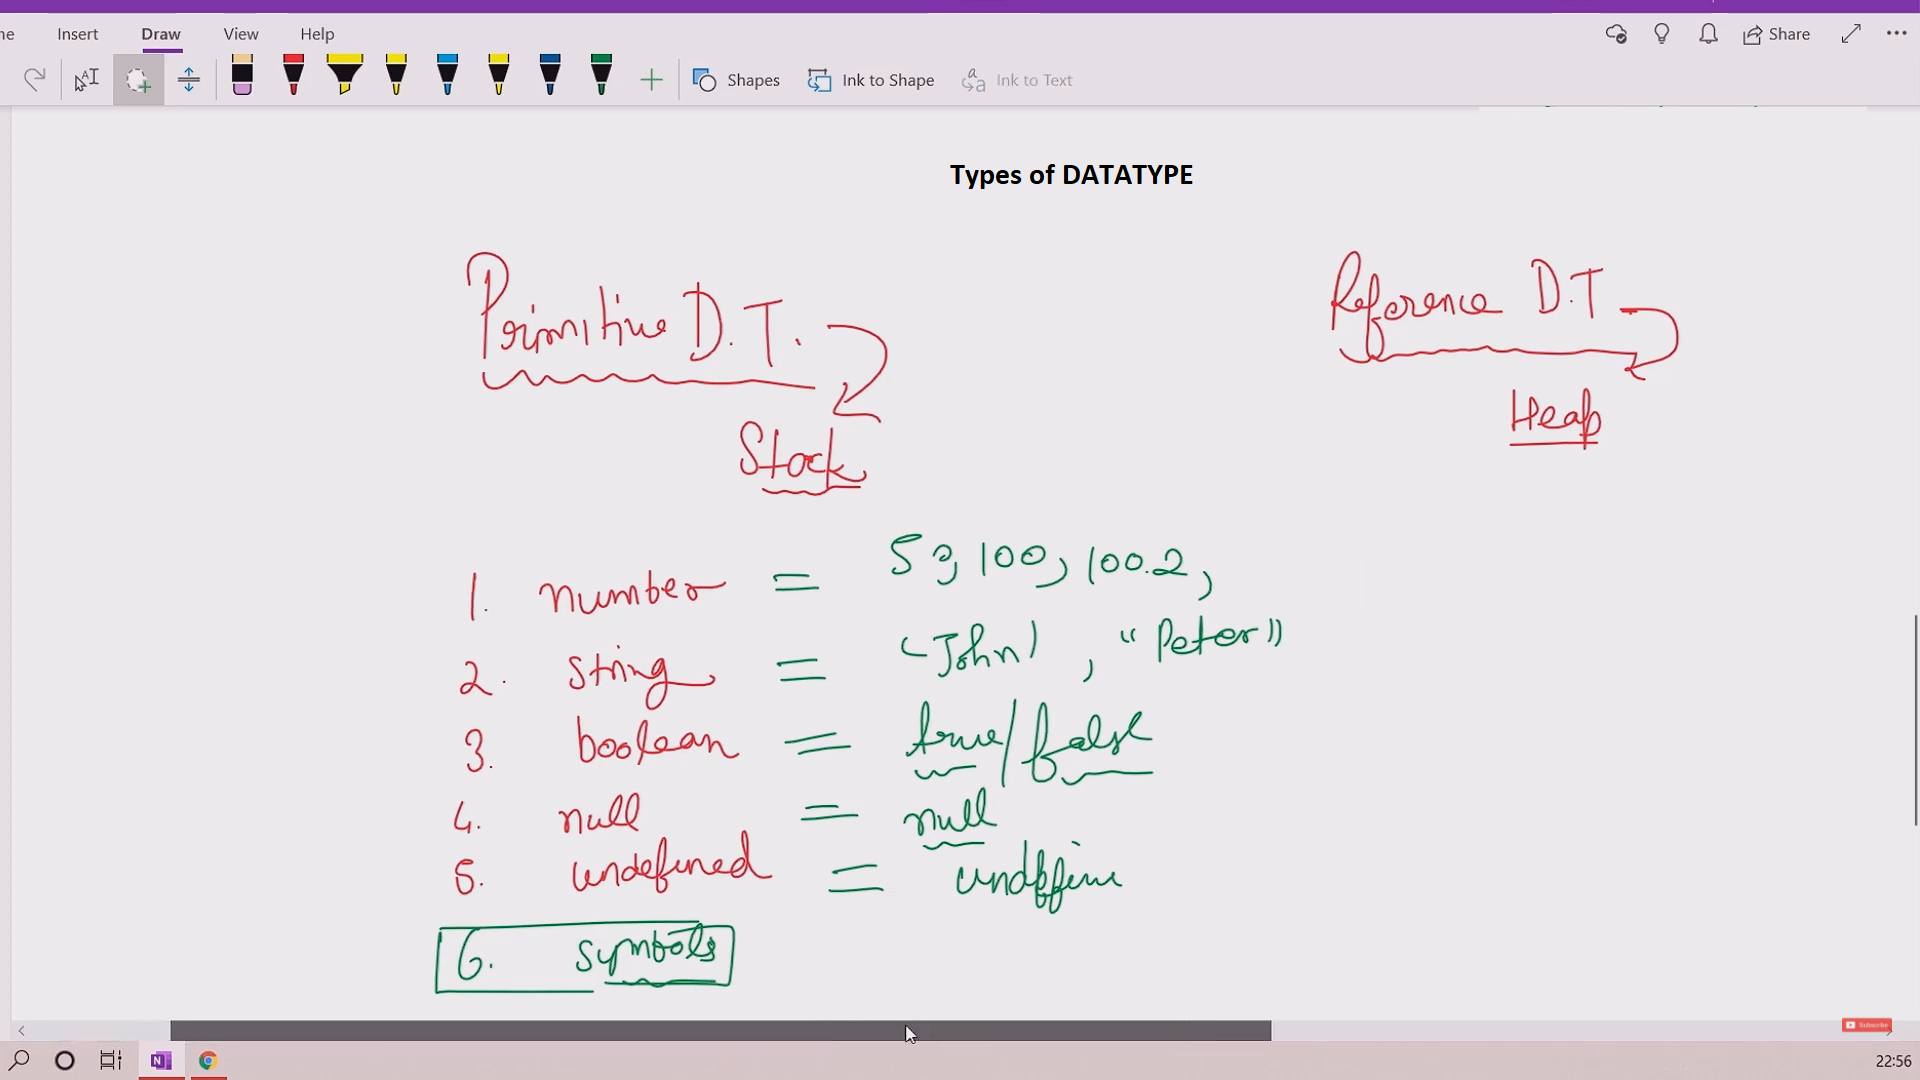 Insert Draw View Help Share
Shapes Ink to Shape Ink to Text
Types of DATATYPE
Primitive D.T. Reference D.T
Stack Heap
1. number = 5, 100, 100.2,
2. string = 'John', "Peter"
3. boolean = true/false
4. null = null
5. undefined = undefine
6. symbols
Subscribe
22:56